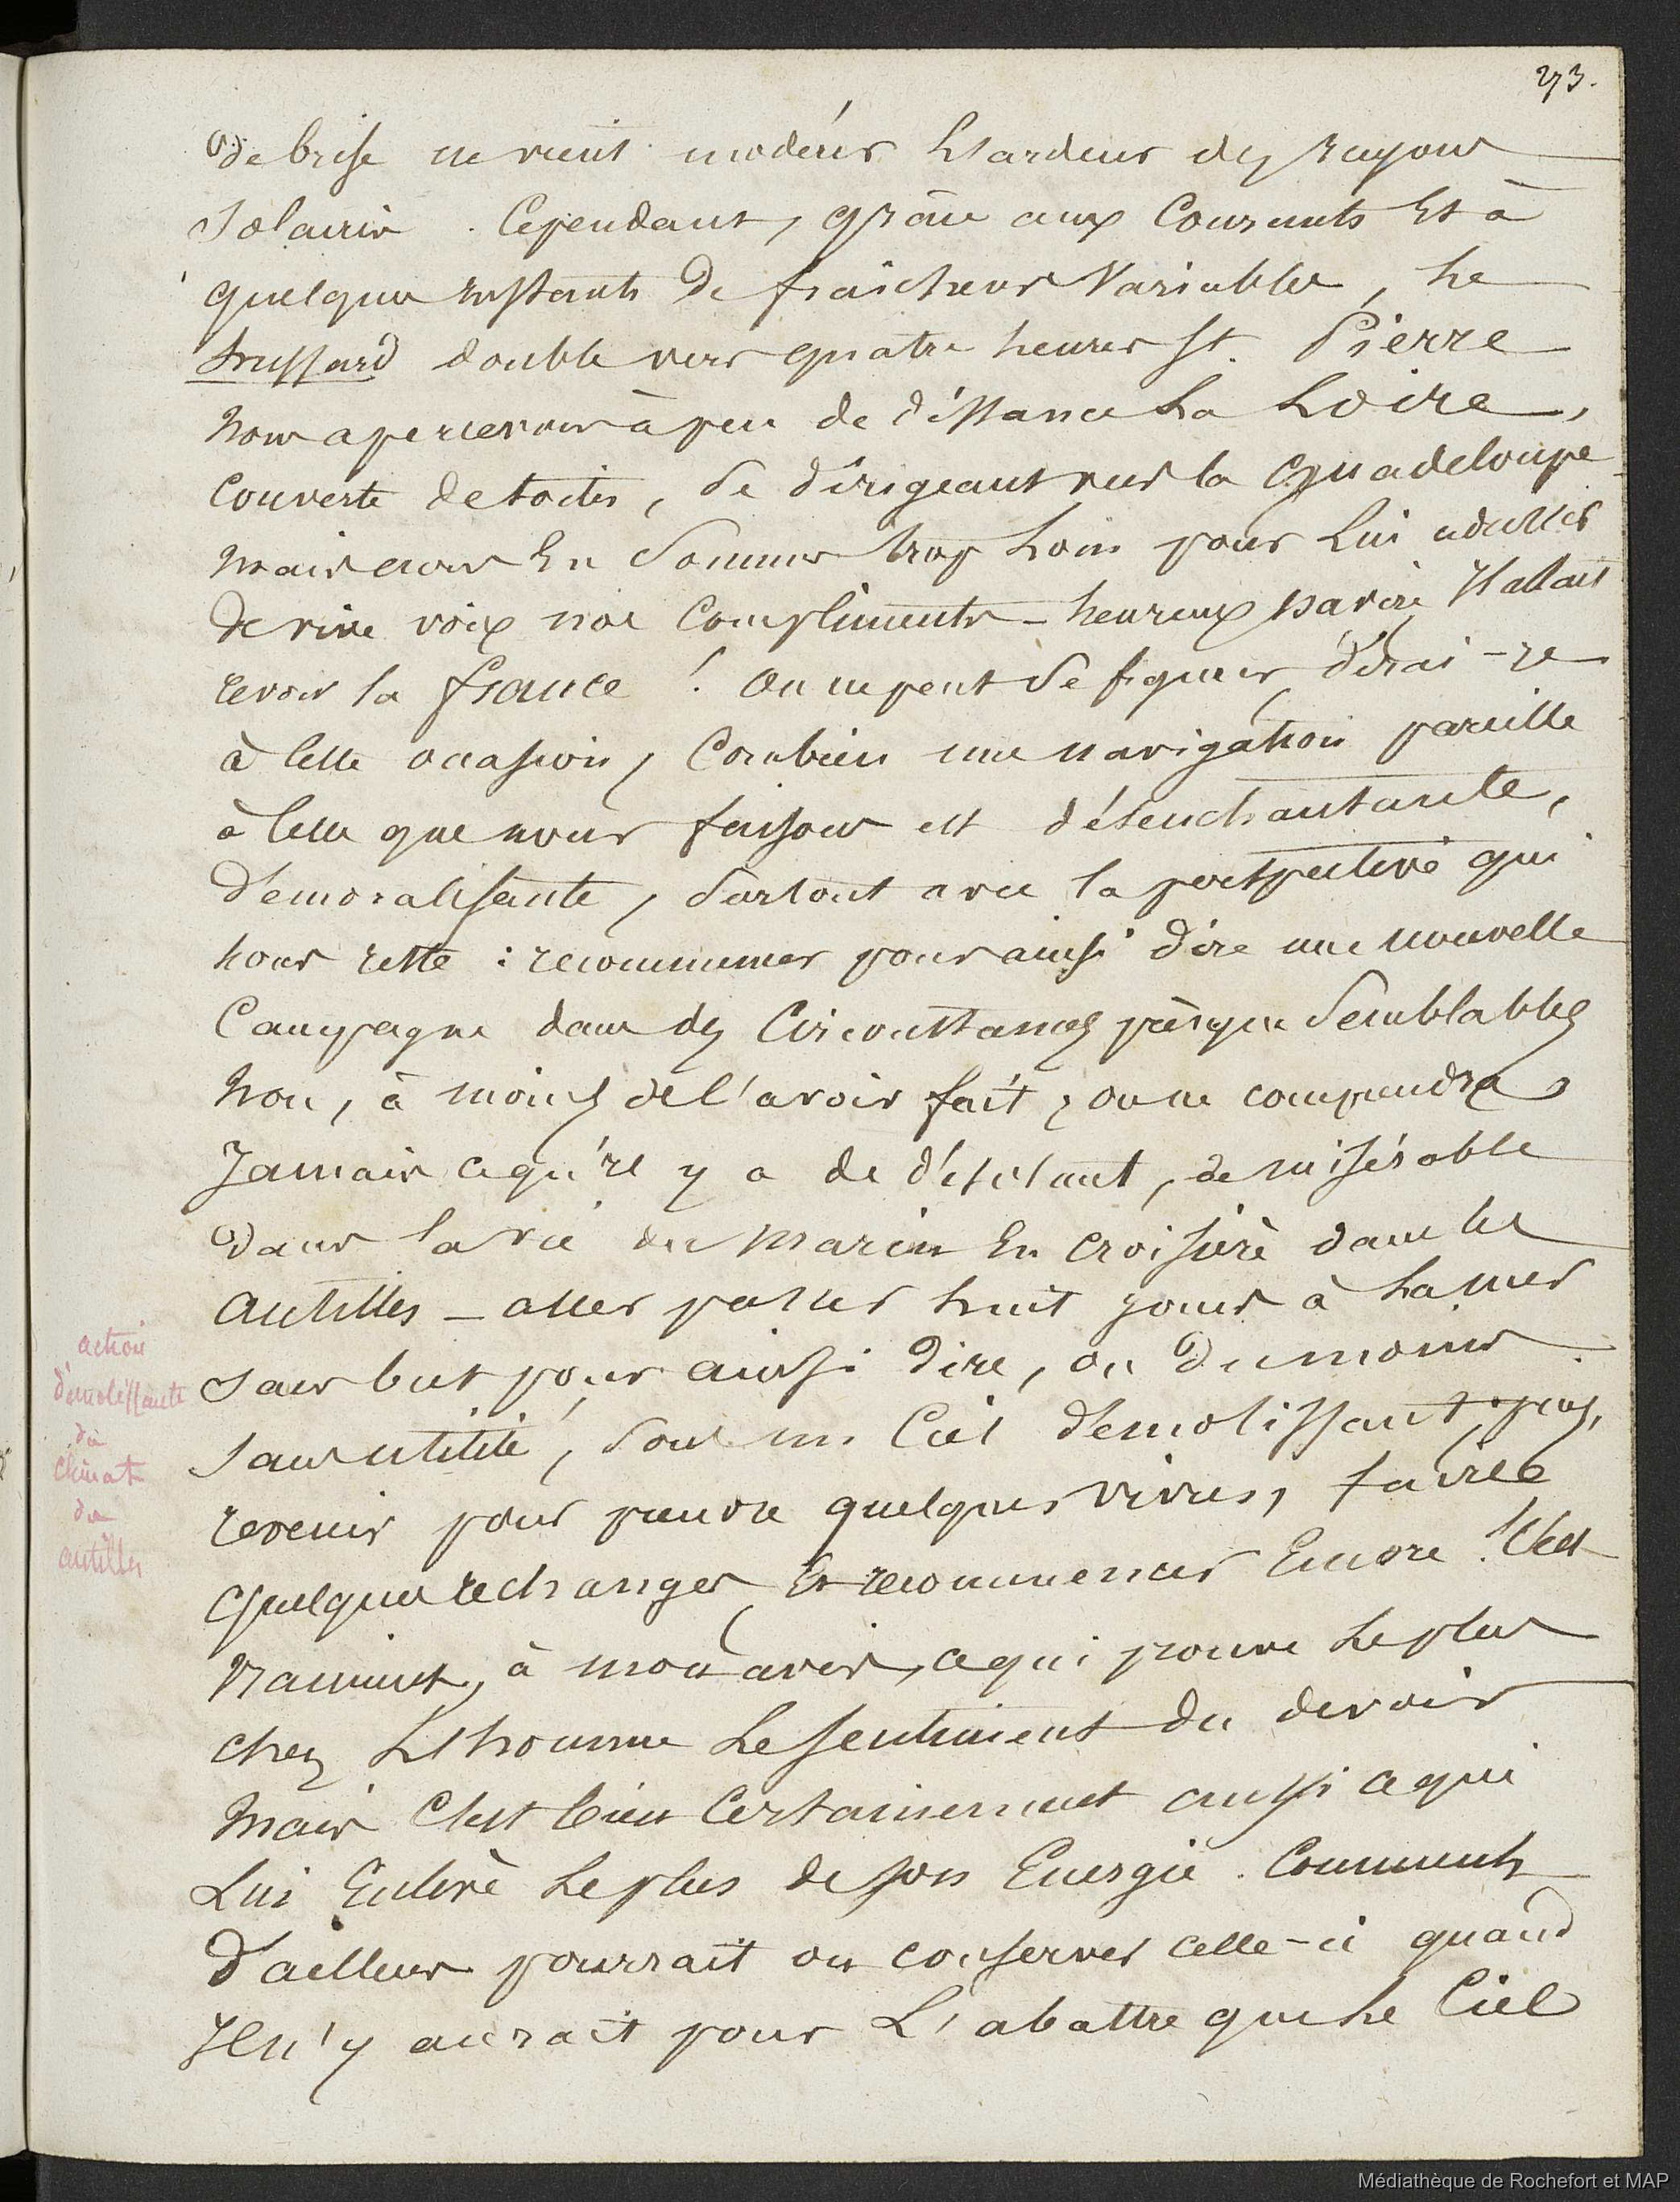 273.
de brise ne vient modérer L'ardeur des rayons
Solaires. Cependant, grâce aux Courants Et à
quelques instants de fraîcheur Variables, Le
hussard double vers quatre heures St. Pierre
Nous apercevons à peu de distance La Loire,
Couverte de toiles, se dirigeant vers la Guadeloupe
Mais nous En sommes trop Loin pour Lui adresser
de vive voix nos Compliments - heureux navire, Il allait
revoir la france ! On ne peut se figurer, dirai-je
à Cette occasion, Combien une navigation pareille
à Celle que nous faisons est désenchantante,
démoralisante, surtout avec la perspective qui
nous reste : recommencer pour ainsi dire une nouvelle
Campagne dans des Circonstances presque semblables
Non, à moins de l'avoir fait, on ne comprendra
Jamais ce qu'il y a de désolant, de misérable
dans la vie du Marin En croisière dans les
antilles - aller passer huit jours à La mer
sans but pour ainsi dire, ou du moins
sans utilité, sous un Ciel démolissant, puis,
revenir pour prendre quelques vivres, faire
quelques rechanges, Et recommencer Encore ! C'est
vraiment, à mon avis, ce qui prouve Le plus
chez L'homme Le sentiment du devoir
Mais C'est bien Certainement aussi ce qui
Lui Enlève Le plus de son Energie. Comment
d'ailleurs pourrait on conserver celle-ci quand
Il n'y aurait pour L'abattre que Le Ciel
action
démolissante
du
climat
des
antilles
Médiathèque de Rochefort et MAP